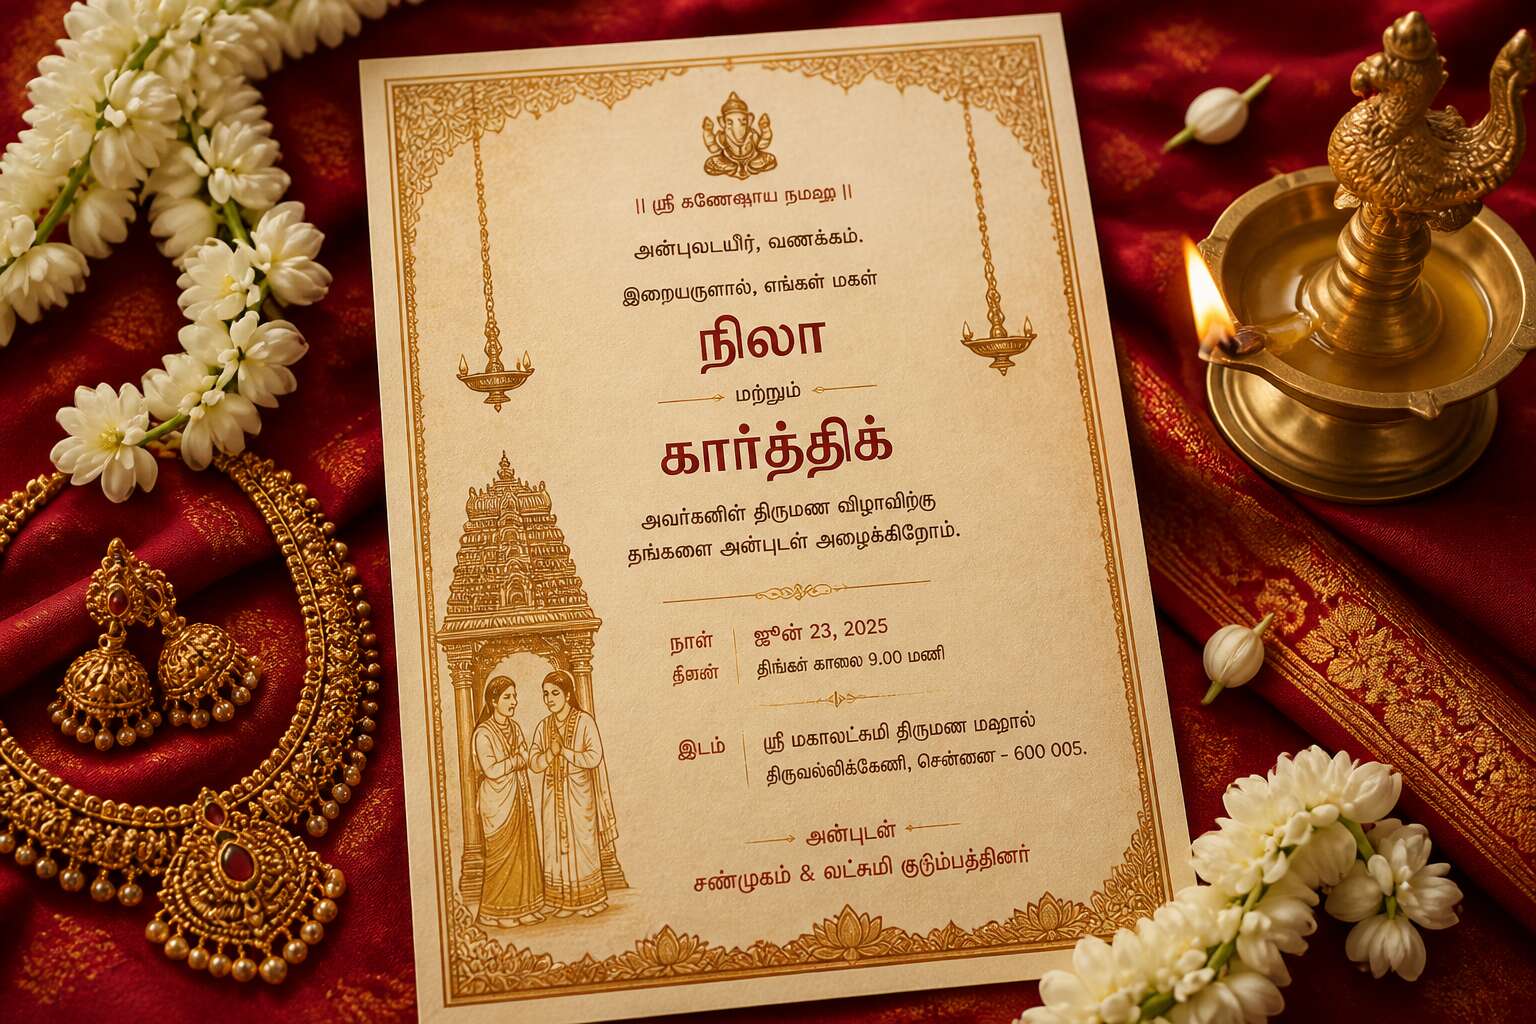 || ஸ்ரீ கணேஷாய நமஹ ||
அன்புடையீர், வணக்கம்.
இறையருளால், எங்கள் மகள்
நிலா
மற்றும்
கார்த்திக்
அவர்களின் திருமண விழாவிற்கு
தங்களை அன்புடன் அழைக்கிறோம்.
நாள் ஜூன் 23, 2025
திங்கள் காலை 9.00 மணி
இடம் ஸ்ரீ மகாலட்சுமி திருமண மஹால்
திருவல்லிக்கேணி, சென்னை - 600 005.
அன்புடன்
சண்முகம் & லட்சுமி குடும்பத்தினர்